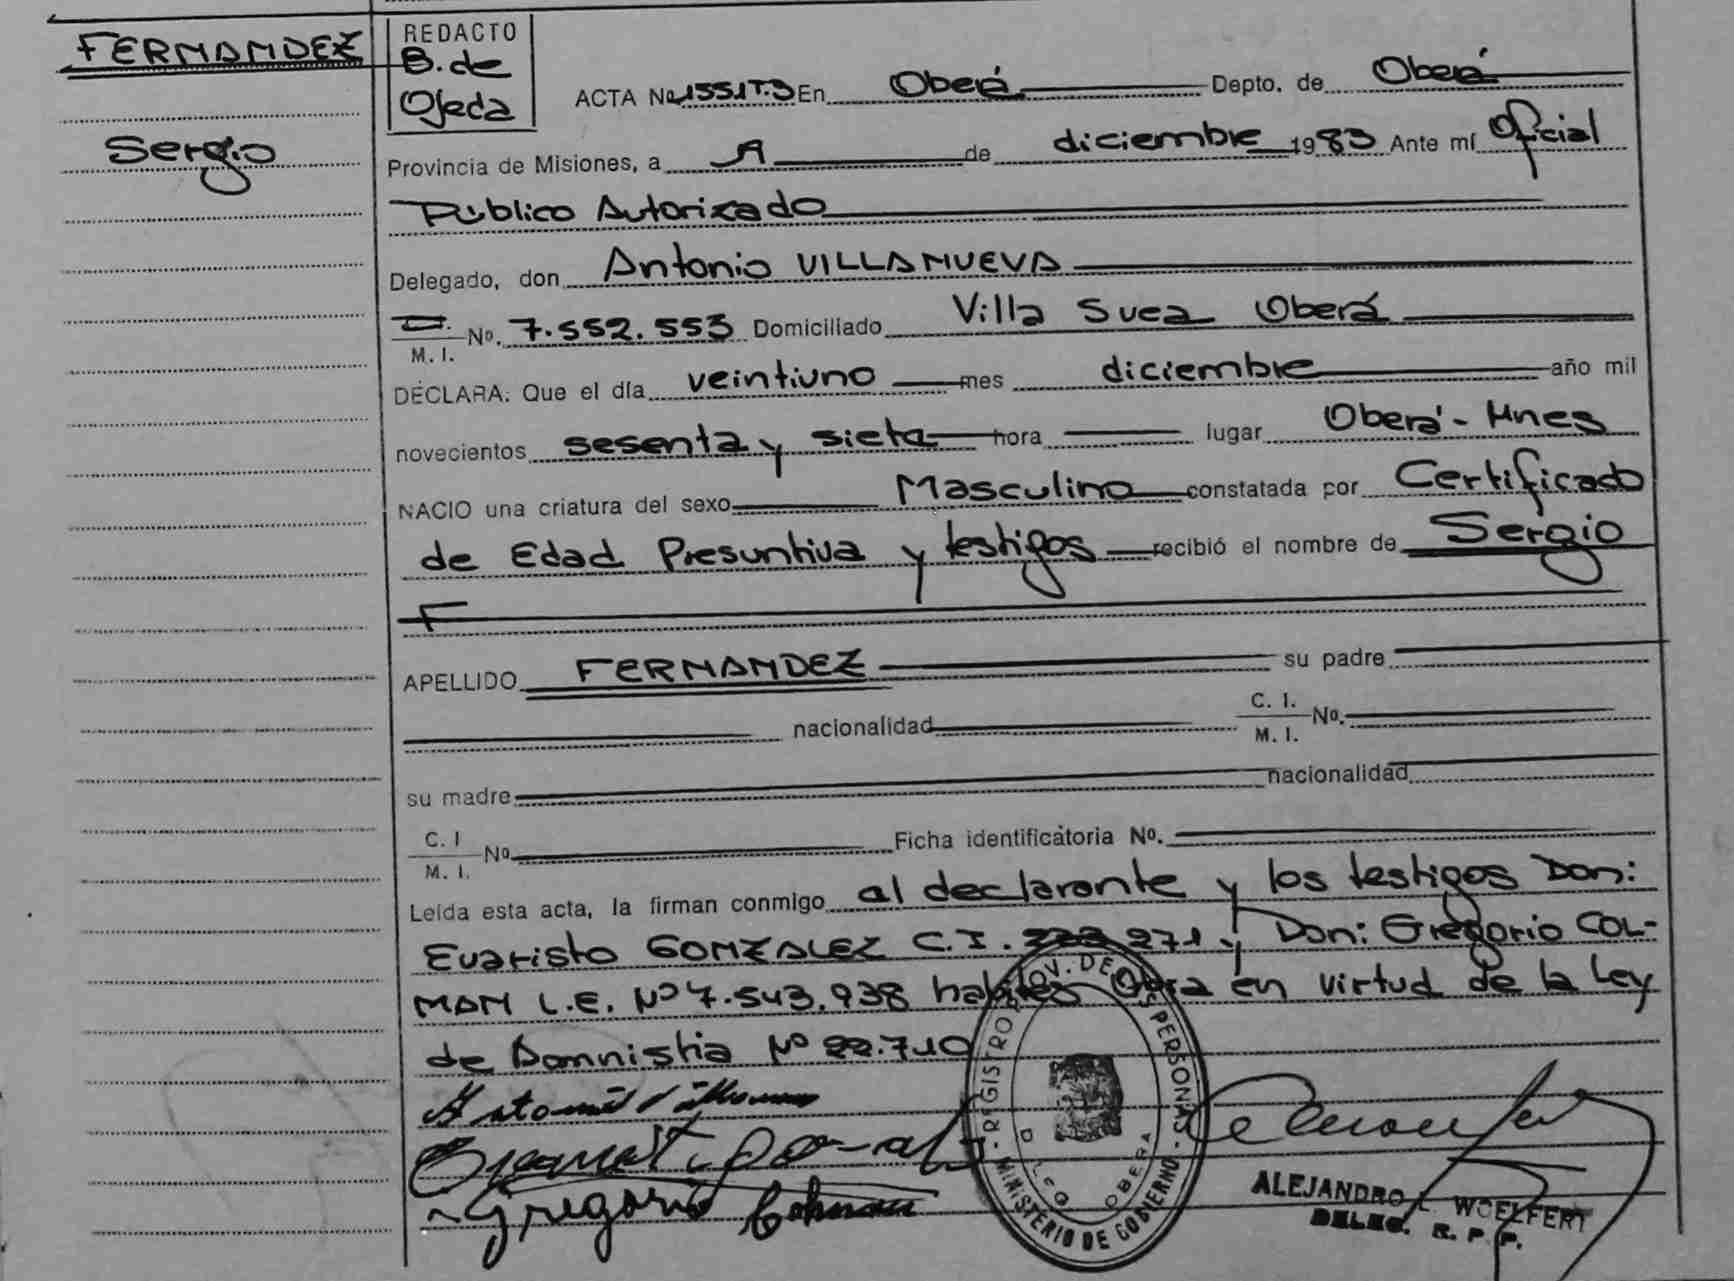 FERNANDEZ
Sergio
REDACTO
B. de
Ojeda
ACTA No 1551T.3 En Oberá Depto. de Oberá
Provincia de Misiones, a de diciembre 1983 Ante mí Oficial
Público Autorizado
Delegado, don Antonio VILLANUEVA
M. I. No. 7.552.553 Domiciliado Villa Suea Oberá
DECLARA: Que el día veintiuno mes diciembre año mil
novecientos sesenta y siete hora lugar Oberá - Mnes
NACIO una criatura del sexo Masculino constatada por Certificado
de Edad Presuntiva y testigos recibió el nombre de Sergio
F
APELLIDO FERNANDEZ su padre
nacionalidad C. I. M. I. No.
su madre nacionalidad
C. I M. I. No Ficha identificatoria No.
Leída esta acta, la firman conmigo al declarante y los testigos Don:
Evaristo GONZALEZ C.I. 271 y Don: Gregorio COL-
MAN L.E. Nº 7.543.938 habiles Obra en virtud de la Ley
de Damnistia Nº 22.710
Gregorio Colman
REGISTRO PROV. DE LAS PERSONAS
MINISTERIO DE GOBIERNO
OBERA
ALEJANDRO L. WOELFERT
DELEG. R. P. P.